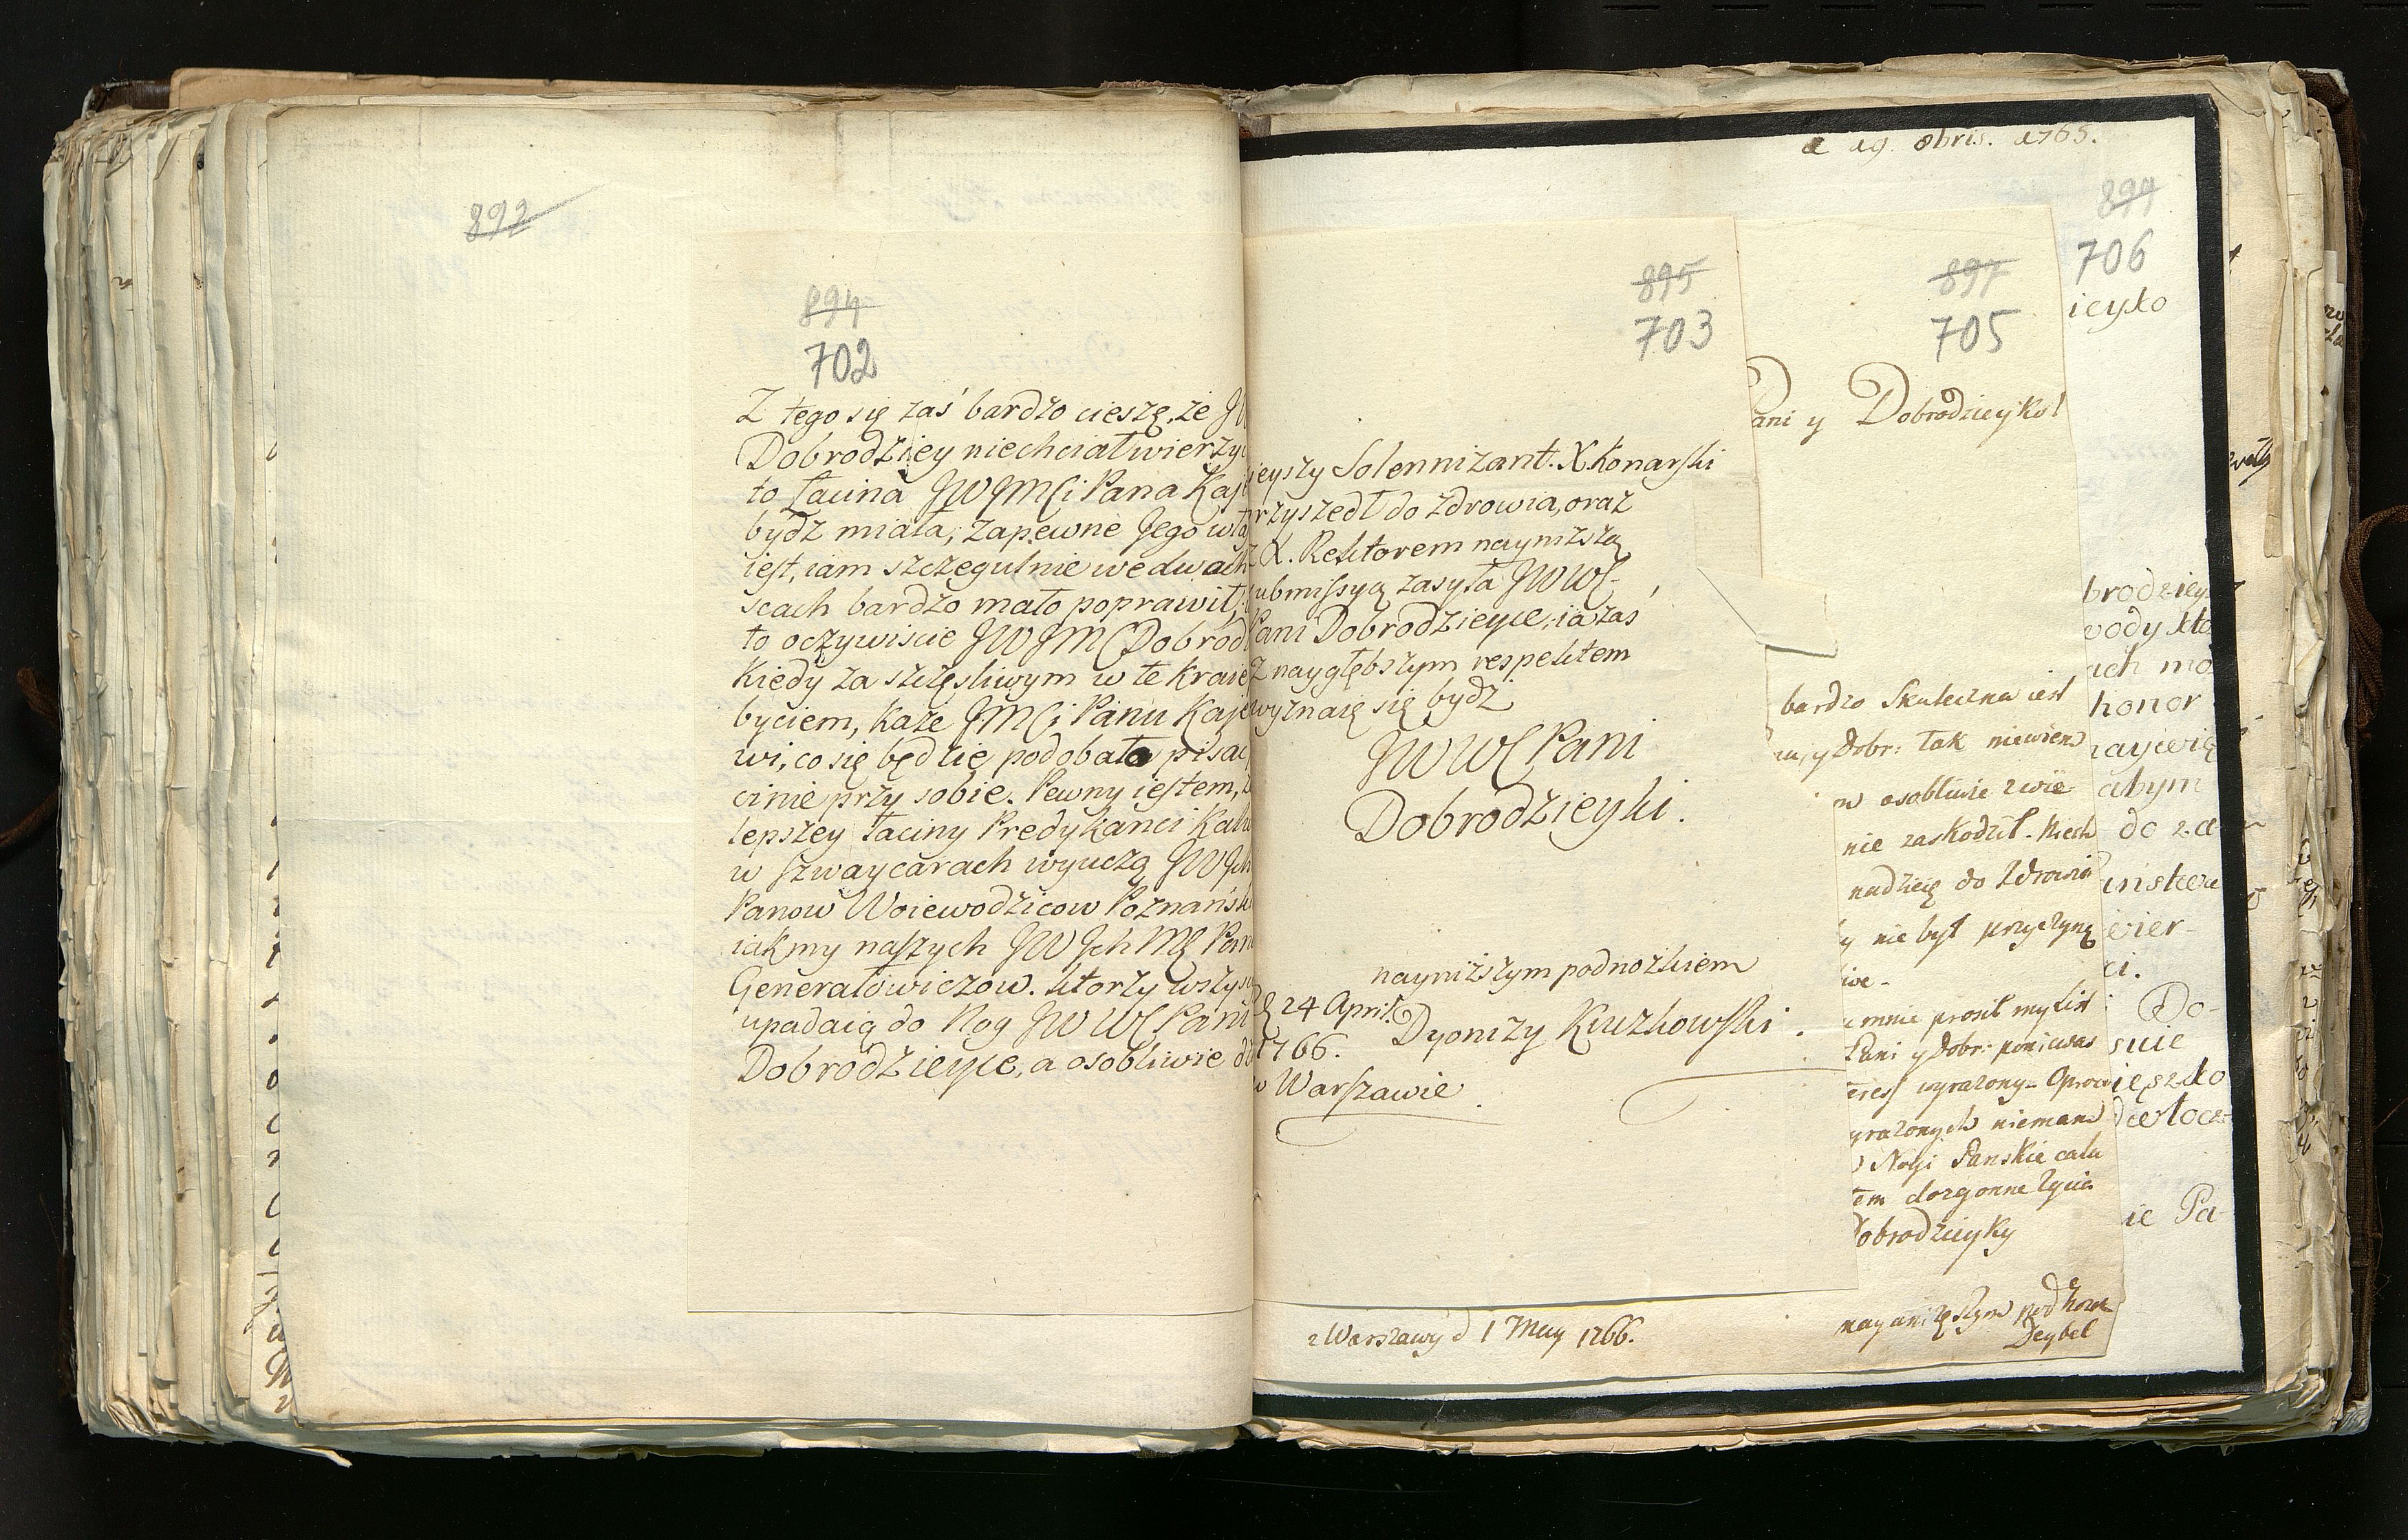 892
894
702
Z tego się zaś bardzo cieszę, że JW
Dobrodziey niechciał wierzy
to Łacina JWJMCi Pana Kaje
bydź miała; zapewne Jego wła
iest, iam szczegulnie we dwuch
scach bardzo mało poprawił,
to oczywiscie JWJMC Dobrod
kiedy za szczęsliwym w te kraie
byciem, każe JMCi Panu Kaje
wi, co się będzie podobało pisać
cinie przy sobie. Pewny iestem, ż
lepszey Łaciny Predykanci Kalw
w Szwaycarach wyuczą JWJch
Panow Woiewodzicow Poznańsk
iak my naszych JWJch Mę Pan
Generałowiczow. ktorzy wszysc
upadaią do Nog JW WC Pani
Dobrodzieyce, a osobliwie dz
895
703
ieyszy Solennizant. X. Konarski
rzyszedł do zdrowia, oraz
z X. Rektorem nayniższą
submissyą zasyła JW WC
Pani Dobrodzieyce; ia zaś
z naygłębszym respektem
wyznaię się bydź
JW WC Pani
Dobrodzieyki.
nayniższym podnożkiem
D 24 April. Dyonizy Kuczkowski.
1766.
w Warszawie
897
705
Pani y Dobrodzieyko!
bardzo Skuteczna iest
y Dobr: tak niewiem
w osobliwie zwie
nie zaskodził. Niech
nadzieię do Zdrowia
y nie był przyczyną
iwe.
mnie prosił my List
Pani y Dobr: poniewas
teress wyrazony. Oprocz
yrazonych niemam
Nogi Panskie cału
tem dozgonne zycia
Dobrodzieyky
nayanizęszym podnozk
Deybel
z Warszawy d 1 May 1766.
a 19. 8bris. 1765.
899
706
ieyko
brodziey
wody kto
ach mo
honor
naywię
abym
do za
instwa
wier-
ci.
Do-
suie
ięszko
ie Pa